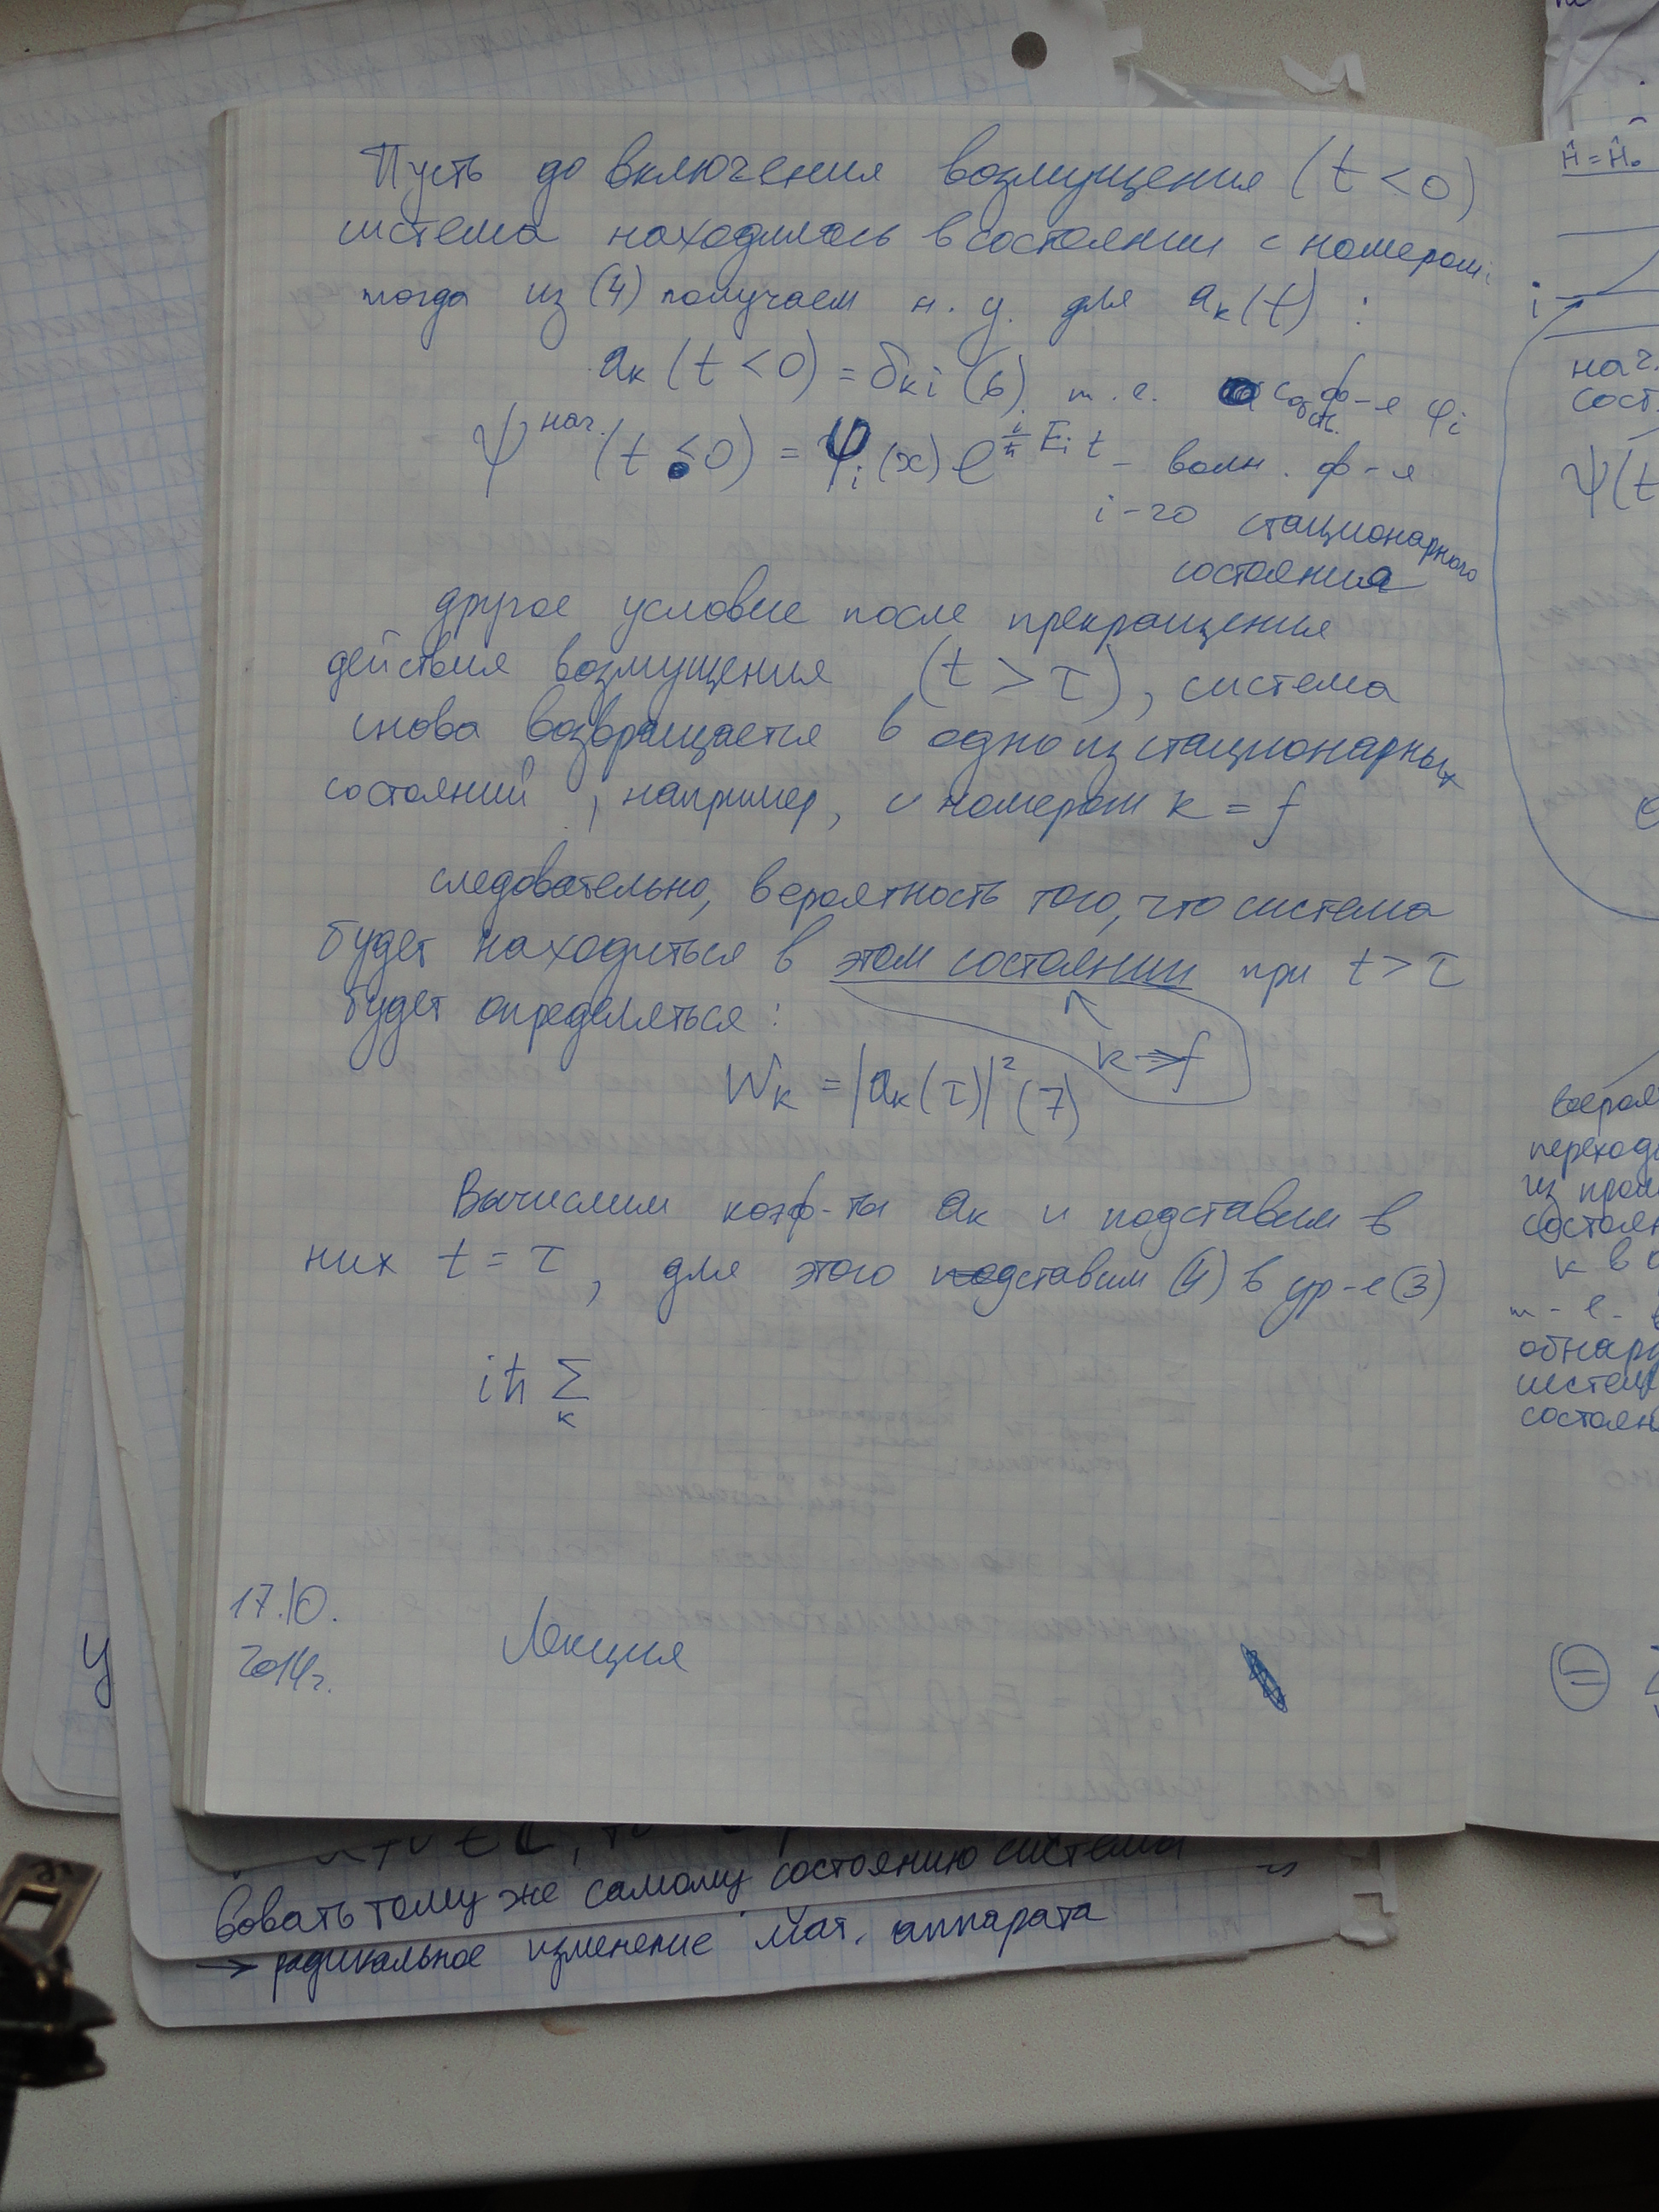 Пусть до включения возмущения (t < 0)
система находилась в состоянии с номером i
тогда из (4) получаем н. у. для aₖ(t) :
aₖ (t < 0) = δₖᵢ (6) т. е. собств. ф-я φᵢ
Ψ нач. (t ≤ 0) = φᵢ(x) e^{i/ħ Eᵢ t} – волн. ф-я
i-го стационарного
состояния
другое условие после прекращения
действия возмущения (t > τ), система
снова возвращается в одно из стационарных
состояний, например, с номером k = f
следовательно, вероятность того, что система
будет находиться в этом состоянии при t > τ
будет определяться:
k ⇒ f
Wₖ = |aₖ(τ)|² (7)
Вычислим коэф-ты aₖ и подставим в
них t = τ, для этого подставим (4) в ур-е (3)
iħ Σ
k
17.10.
2014г.
Лекция
Ĥ = Ĥ₀
i
нач.
сост.
Ψ(t
переход
состоян
k в
т. е.
состоян
=
у
вовать тому же самому состоянию система
→ радикальное изменение мат. аппарата